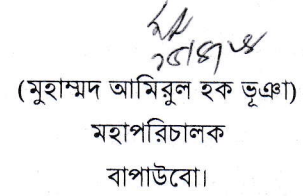 (মুহাম্মদ আমিরুল হক ভূঞা)
মহাপরিচালক
বাপাউবো।